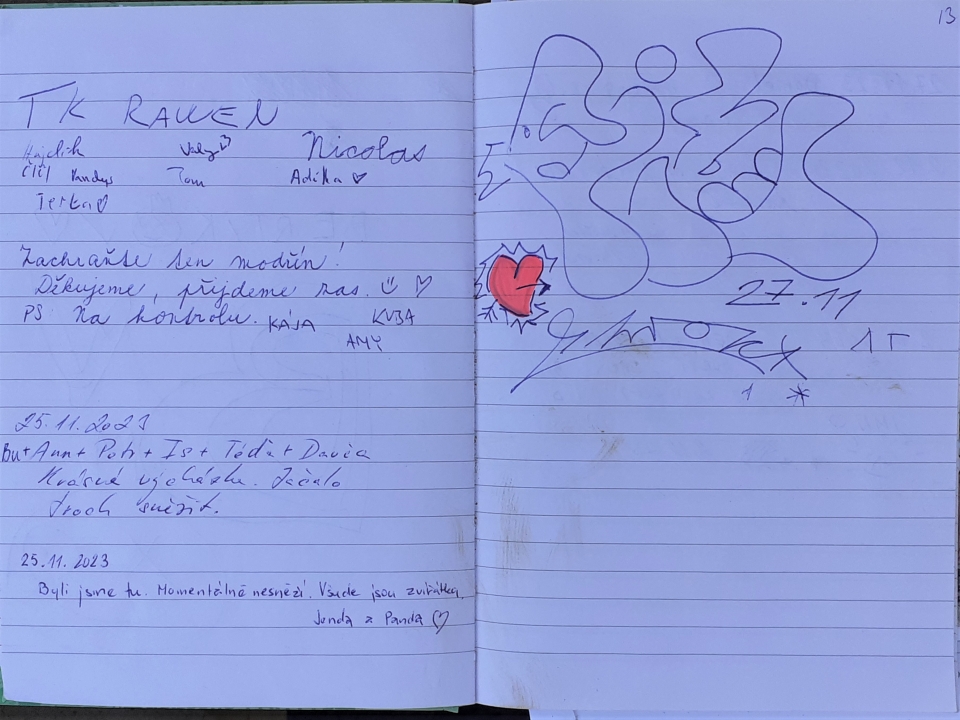 TK RAWEN
Hajdik Nicolas
Číčí Tom Adélka ♡
Terka ♡
Zachraňte ten modřín!
Děkujeme, přijdeme zas. ♡
PS Na kontrolu. KÁJA KUBA
AMY
25.11.2023
Bu + Ann + Petr + Is + Téďa + David
Krásná vycházka. Začalo
troch sněžit.
25.11.2023
Byli jsme tu. Momentálně nesněží. Všude jsou zvířátka.
Jenda z Panda ♡
13
27.11
15
1 *